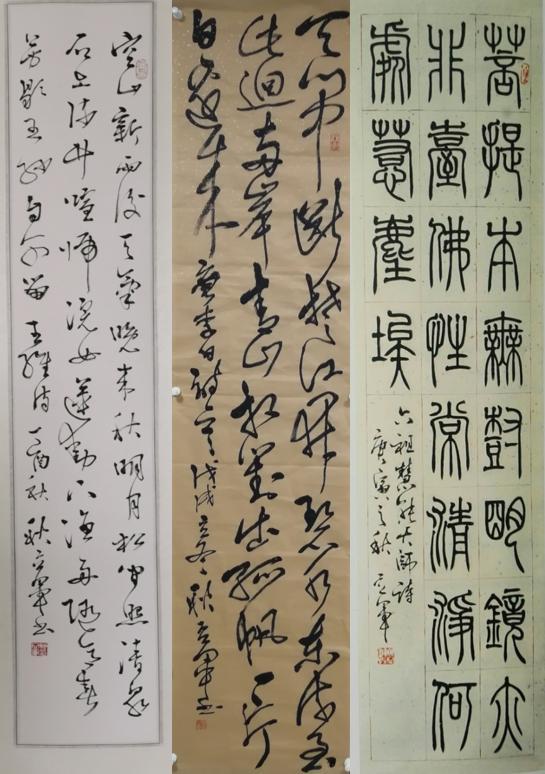 空山新雨後天氣晚来秋明月松間照清泉
石上流竹喧歸浣女蓮動下漁舟隨意春
芳歇王孫自可留 王維詩 丁酉秋 秋立軍书
天门中斷楚江開碧水东流至
此迴两岸青山相對出孤帆一片
日邊来 唐李白詩 戊戌立冬 秋立軍书
菩提本無樹明鏡亦
非臺佛性常清淨何
處惹塵埃
六祖慧能大師詩
庚寅之秋 立軍